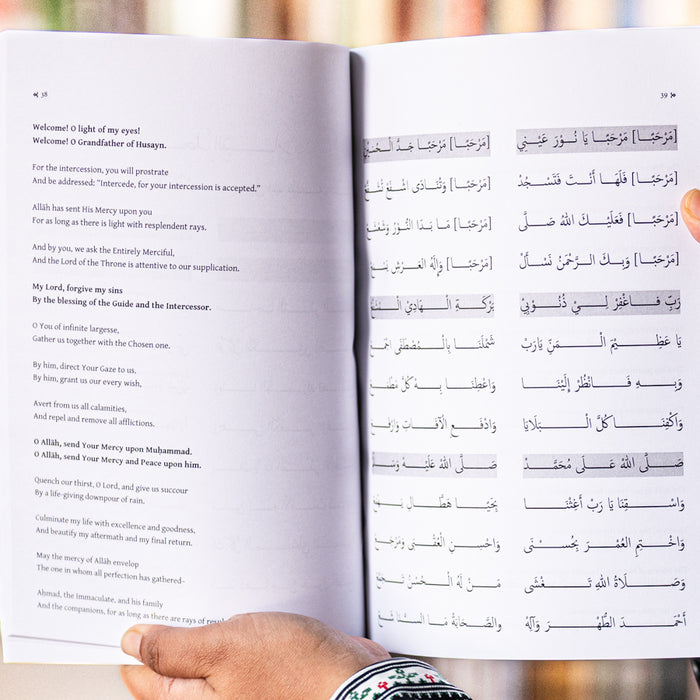 38
Welcome! O light of my eyes!
Welcome! O Grandfather of Husayn.
For the intercession, you will prostrate
And be addressed: “Intercede, for your intercession is accepted.”
Allāh has sent His Mercy upon you
For as long as there is light with resplendent rays.
And by you, we ask the Entirely Merciful,
And the Lord of the Throne is attentive to our supplication.
My Lord, forgive my sins
By the blessing of the Guide and the Intercessor.
O You of infinite largesse,
Gather us together with the Chosen one.
By him, direct Your Gaze to us.
By him, grant us our every wish,
Avert from us all calamities,
And repel and remove all afflictions.
O Allāh, send Your Mercy upon Muḥammad.
O Allāh, send Your Mercy and Peace upon him.
Quench our thirst, O Lord, and give us succour
By a life-giving downpour of rain.
Culminate my life with excellence and goodness,
And beautify my aftermath and my final return.
May the mercy of Allāh envelop
The one in whom all perfection has gathered–
Aḥmad, the Immaculate, and his family
And the companions, for as long as there are rays of
39
[مَرْحَبًا] مَرْحَبًا يَا نُورَ عَيْنِي [مَرْحَبًا] مَرْحَبًا جَدَّ
[مَرْحَبًا] فَلَهَا أَنْتَ فَتَسْجُدْ [مَرْحَبًا] وَتُنَادَى اشْفَعْ
[مَرْحَبًا] فَعَلَيْكَ اللهُ صَلَّى [مَرْحَبًا] مَا بَدَا النُّورُ
[مَرْحَبًا] وَبِكَ الرَّحْمَنُ نَسْأَلْ [مَرْحَبًا] وَإِلَهُ العَرْشِ
رَبِّ فَاغْفِرْ لِيْ ذُنُوْبِيْ بَرْكَةِ الْهَادِيْ
يَا عَظِيْمَ الْمَنِّ يَارَبْ شَمْلَنَا بِالْمُصْطَفَى
وَبِهِ فَانْظُرْ إِلَيْنَا وَاعْطِنَا بِهْ كُلَّ
وَاكْفِنَا كُلَّ الْبَلَايَا وَادْفَعِ الْآفَاتِ
صَلَّى اللهُ عَلَى مُحَمَّدْ صَلَّى اللهُ عَلَيْهِ
وَاسْقِنَا يَا رَبْ أَغِثْنَا بِحَيَا هَطَّالْ
وَاخْتِمِ الْعُمْرَ بِحُسْنَى وَاحْسِنِ الْعُقْبَى
وَصَلَاةُ اللهِ تَغْشَى مَنْ لَهُ الْحُسْنُ
أَحْمَدَ الطُّهْرَ وَآلِهْ وَالصَّحَابَةْ مَا السَّنَا